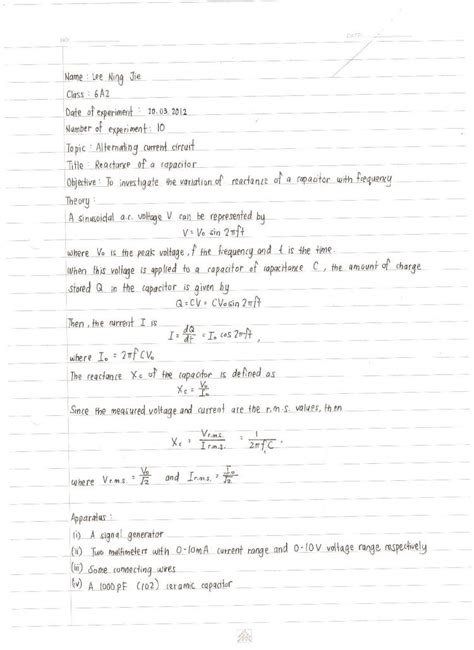 NO:
DATE:
Name : Lee Ning Jie
Class : 6A2
Date of experiment : 20.03.2012
Number of experiment : 10
Topic : Alternating current circuit
Title : Reactance of a capacitor
Objective : To investigate the variation of reactance of a capacitor with frequency
Theory :
A sinusoidal a.c. voltage V can be represented by
V = V₀ sin 2πft
where V₀ is the peak voltage, f the frequency and t is the time.
When this voltage is applied to a capacitor of capacitance C, the amount of charge
stored Q in the capacitor is given by
Q = CV = CV₀ sin 2πft
Then, the current I is
I = dQ/dt = I₀ cos 2πft,
where I₀ = 2πfCV₀
The reactance Xc of the capacitor is defined as
Xc = V₀/I₀
Since the measured voltage and current are the r.m.s. values, then
Xc = Vr.m.s./Ir.m.s. = 1/2πfC,
where Vr.m.s. = V₀/√2 and Ir.m.s. = I₀/√2
Apparatus :
(i) A signal generator
(ii) Two multimeters with 0-10mA current range and 0-10V voltage range respectively
(iii) Some connecting wires
(iv) A 1000pF (102) ceramic capacitor